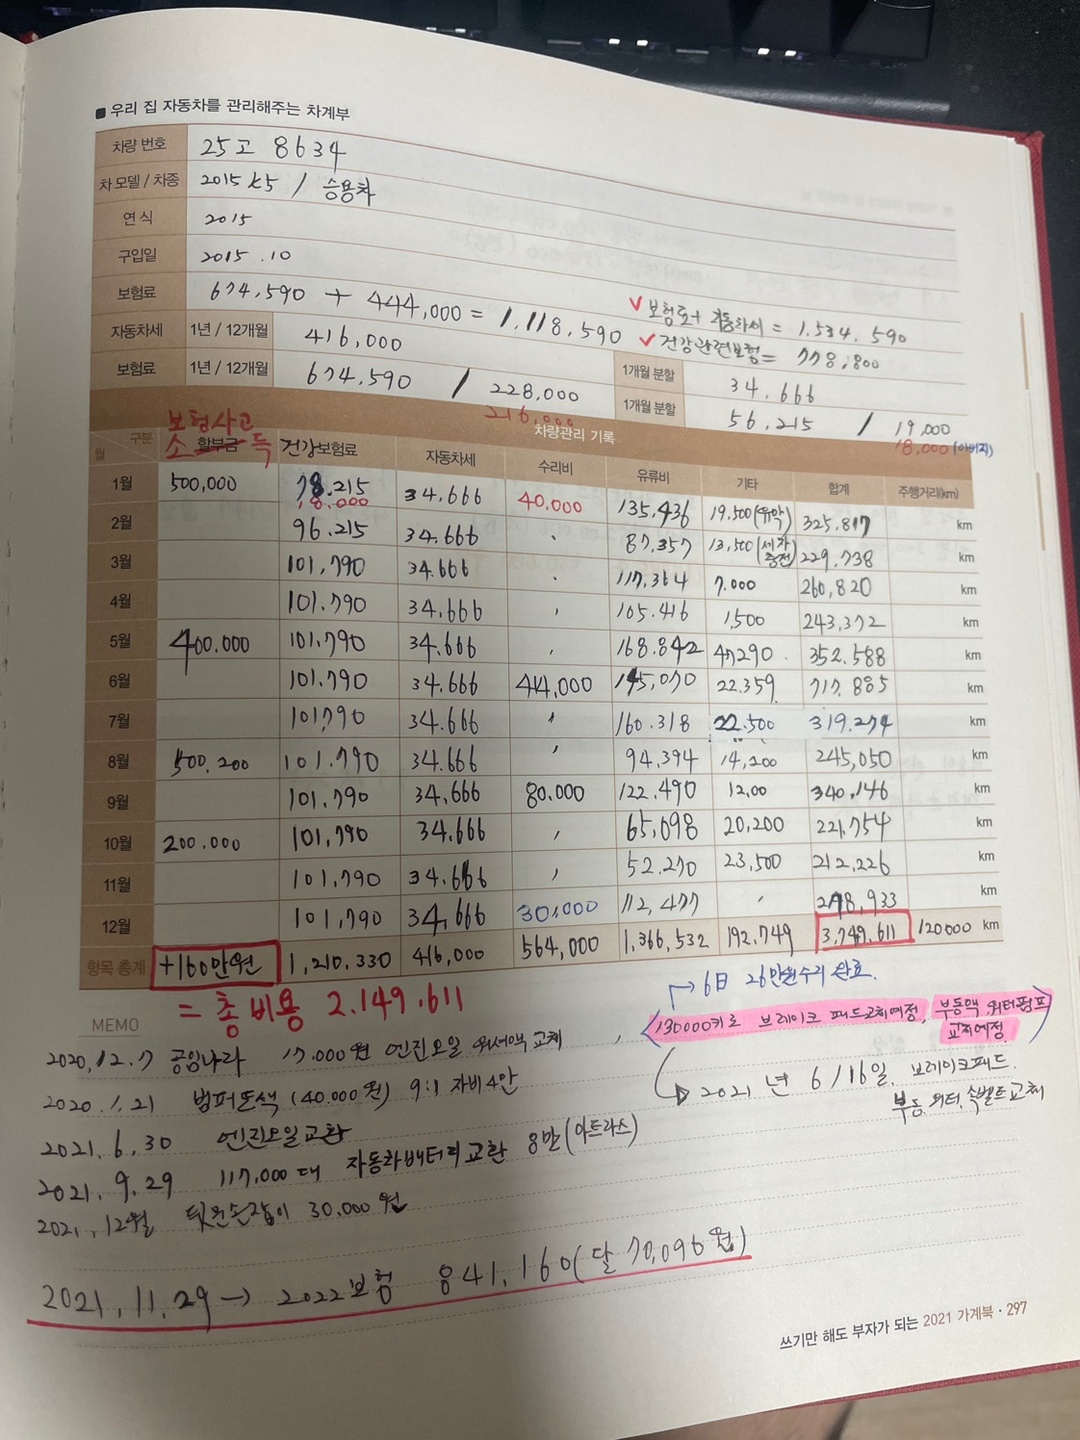 ■ 우리 집 자동차를 관리해주는 차계부
차량 번호 25고 8634
차 모델 / 차종 2015 k5 / 승용차
연 식 2015
구입일 2015 .10
보험료 674,590 + 444,000 = 1,118,590 ✓ 보험료+ 자동차세 = 1.534.590
✓ 건강관련보험= 778,800
자동차세 1년 / 12개월 416,000 1개월 분할 34.666
보험료 1년 / 12개월 674.590 / 228,000 1개월 분할 56,215 / 19,000
216,000 18,000 (아버지)
차량관리 기록
보험사고
월 구분 소 할부금 득 건강보험료 자동차세 수리비 유류비 기타 합계 주행거리(km)
1월 500,000 78.215 34.666 40.000 135,436 19,500(유막) 325.817 km
18.000
2월 96.215 34.666 〃 87.357 13,500(세차충전) 229.738 km
3월 101,790 34.666 〃 117.364 7.000 260,820 km
4월 101.790 34.666 〃 105.416 1,500 243,372 km
5월 400.000 101.790 34.666 〃 168.842 47,290 352.588 km
6월 101.790 34.666 414,000 145,070 22.359 717.885 km
7월 101,790 34.666 〃 160.318 22.500 319.274 km
8월 500.200 101.790 34.666 〃 94.394 14,200 245,050 km
9월 101.790 34.666 80.000 122.490 12.00 340.146 km
10월 200.000 101,790 34.666 〃 65,098 20,200 221,754 km
11월 101.790 34.666 〃 52.270 23,500 212,226 km
12월 101,790 34,666 30,000 112,477 〃 278,933 km
항목 총계 +160만원 1,210.330 416,000 564,000 1,366,532 192.749 3,749,611 120000 km
= 총 비용 2.149.611
→ 6日 26만원수리 완료.
MEMO
(130000키로 브레이크 패드교체예정, 부동액 워터펌프 교체예정.)
2020.12.7 공임나라 17.000원 엔진오일 워셔액 교체
→ 2021년 6/16일. 브레이크패드.
부동.워터.속벨트교체
2020.1.21 범퍼도색 (40.000원) 9:1 자비4만
2021.6.30 엔진오일교환
2021.9.29 117,000대 자동차배터리교환 8만(아트라스)
2021.12월 뒷문손잡이 30.000원
2021.11.29 → 2022보험 841,160(달 70,096원)
쓰기만 해도 부자가 되는 2021 가계북 · 297